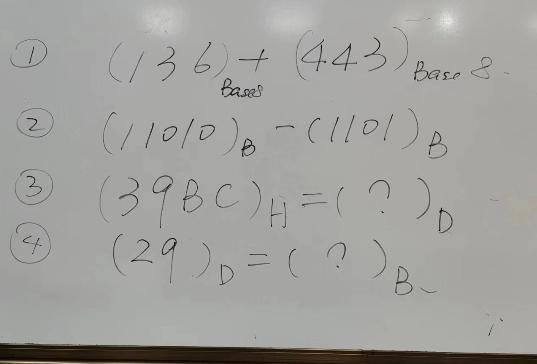 ① (136)Base8 + (443)Base 8.
② (11010)B - (1101)B
③ (39BC)H = ( ? )D
④ (29)D = ( ? )B